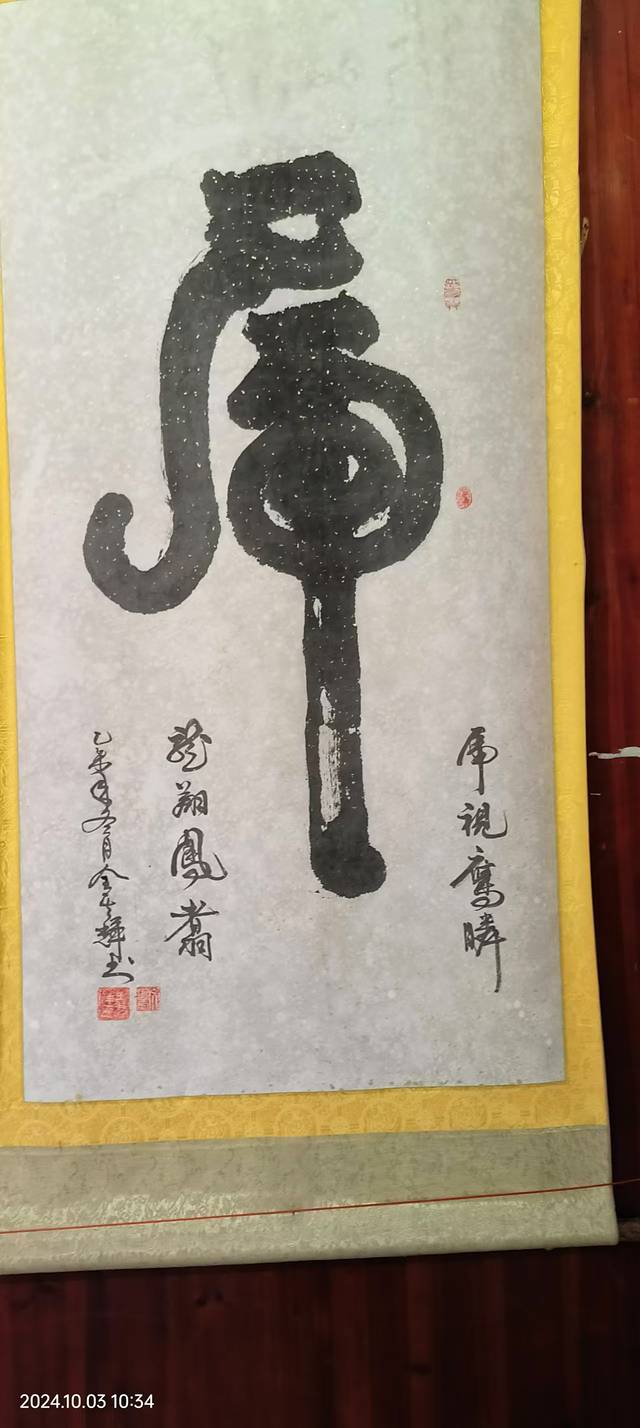 虎
虎視鹰瞵
龍翔鳳翥
乙未年冬月金書輝书
2024.10.03 10:34